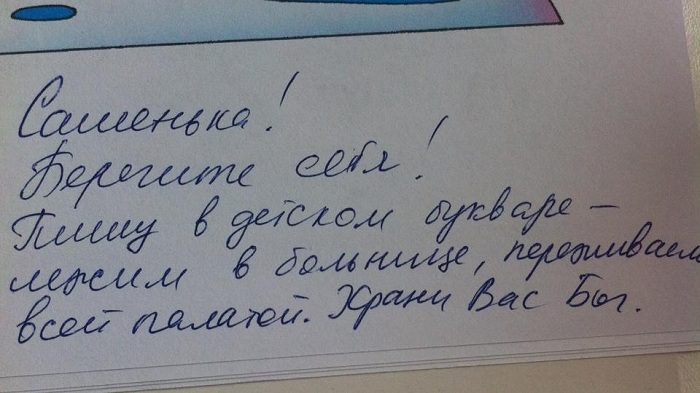 Сашенька!
Берегите себя!
Пишу в детском букваре –
лежим в больнице, переживаем
всей палатой. Храни Вас Бог.